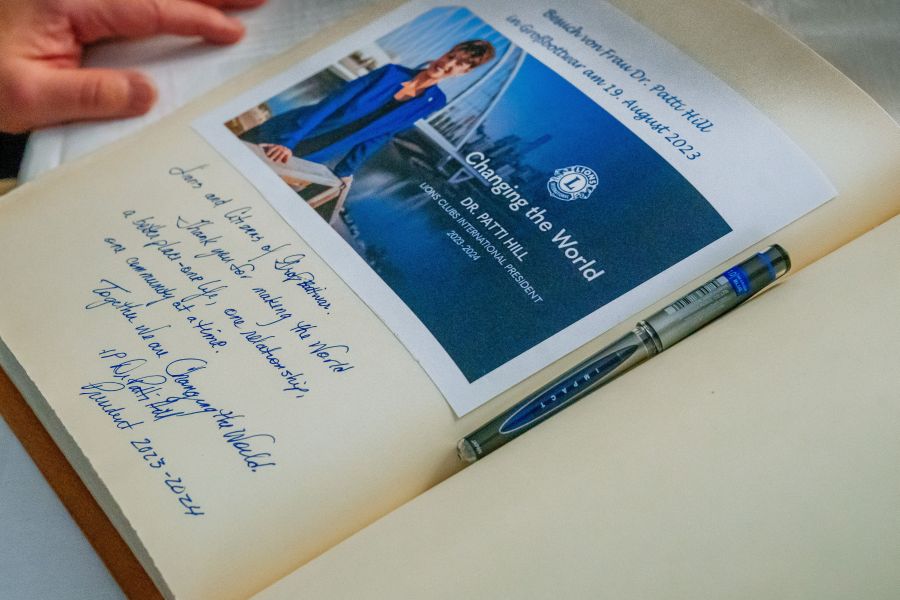 Besuch von Frau Dr. Patti Hill
in Großbottwar am 19. August 2023
LIONS
L
Changing the World
DR. PATTI HILL
LIONS CLUBS INTERNATIONAL PRESIDENT
2023-2024
Lions and Citizens of Großbottwar.
Thank you for making the World
a better place-one life, one relationship,
one community at a time.
Together we are Changing the World.
IP Dr. Patti Hill
President 2023-2024
IMPACT